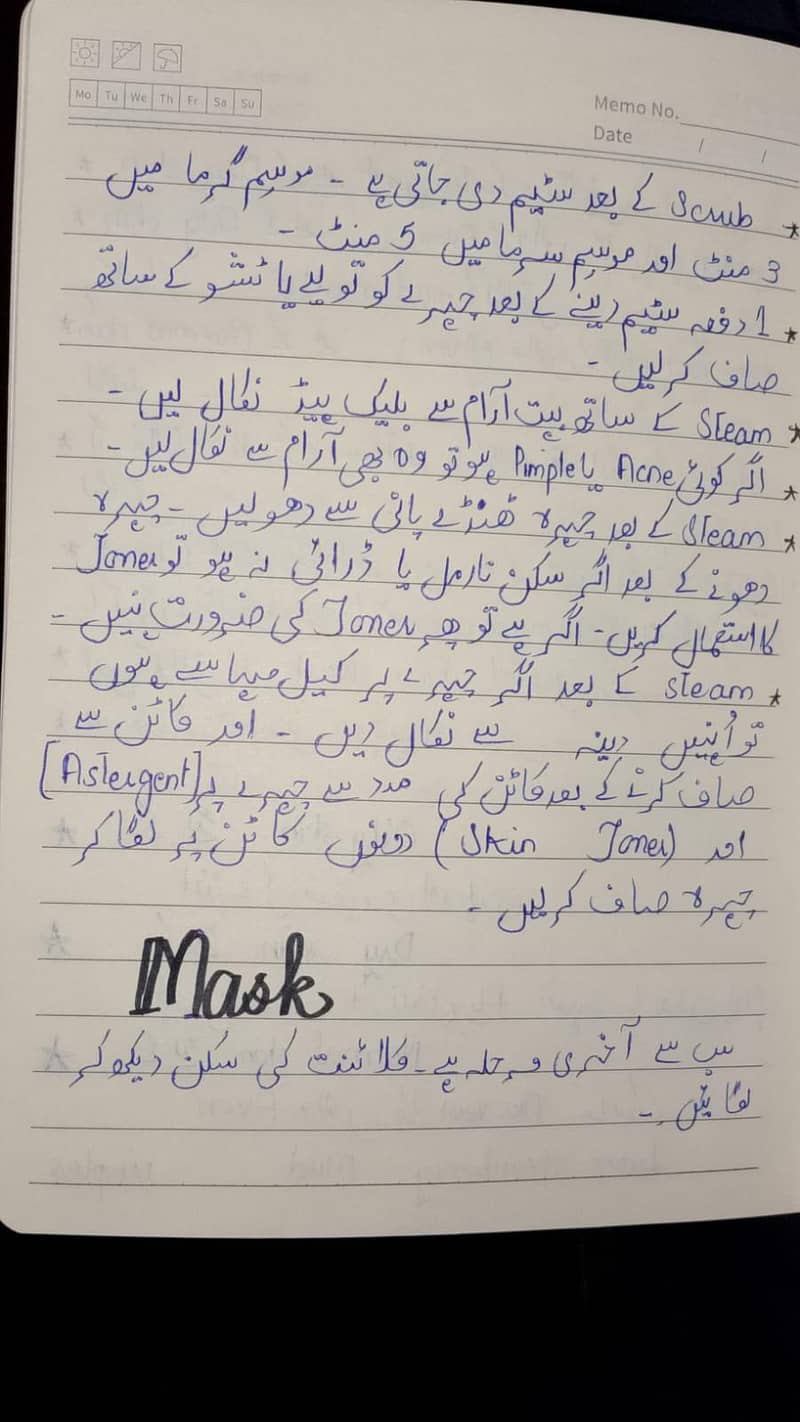 Mo Tu We Th Fr Sa Su
Memo No.
Date / /
* Scrub کے بعد سٹیم دی جاتی ہے - موسم گرما میں
3 منٹ اور موسم سرما میں 5 منٹ -
* 1 دفعہ سٹیم دینے کے بعد چہرے کو تولیے یا ٹشو کے ساتھ
صاف کر لیں -
* Steam کے ساتھ بہت آرام سے بلیک ہیڈ نکال لیں -
* اگر کوئی Acne یا Pimple ہو تو وہ بھی آرام سے نکال لیں -
* Steam کے بعد چہرہ ٹھنڈے پانی سے دھو لیں - چہرہ
دھونے کے بعد اگر سکن نارمل یا ڈرائی نہ ہو تو Toner
کا استعمال کریں - اگر ہے تو پھر Toner کی ضرورت نہیں -
* steam کے بعد اگر چہرے پر کیل مہاسے ہوں
تو اُنہیں سے نکال دیں - اور کاٹن سے
صاف کرنے کے بعد کاٹن کی مدد سے چہرے پر [Astergent]
اور (Skin Toner) دونوں کاٹن پر لگا کر
چہرہ صاف کر لیں -
Mask
سب سے آخری مرحلہ ہے - کلائنٹ کی سکن دیکھ کر
لگائیں -